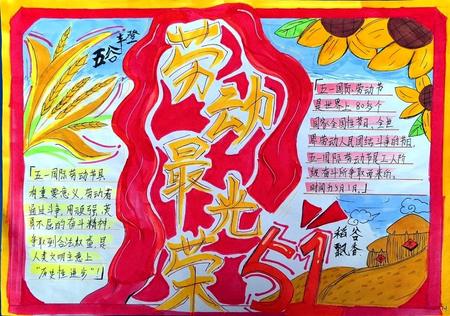 五谷丰登
劳动最光荣
「五一国际劳动节具
有重要意义,劳动者
通过斗争,用顽强、英
勇不屈的奋斗精神,
争取到合法权益,是
人类文明主意上
"历史性进步"」
「五一国际劳动节
是世界上80多个
国家全国性节日。全世
界劳动人民团结斗争的节日,
五一国际劳动节是工人阶
级奋斗所争取来的。
时间为5月1日。」
51
稻谷
飘香